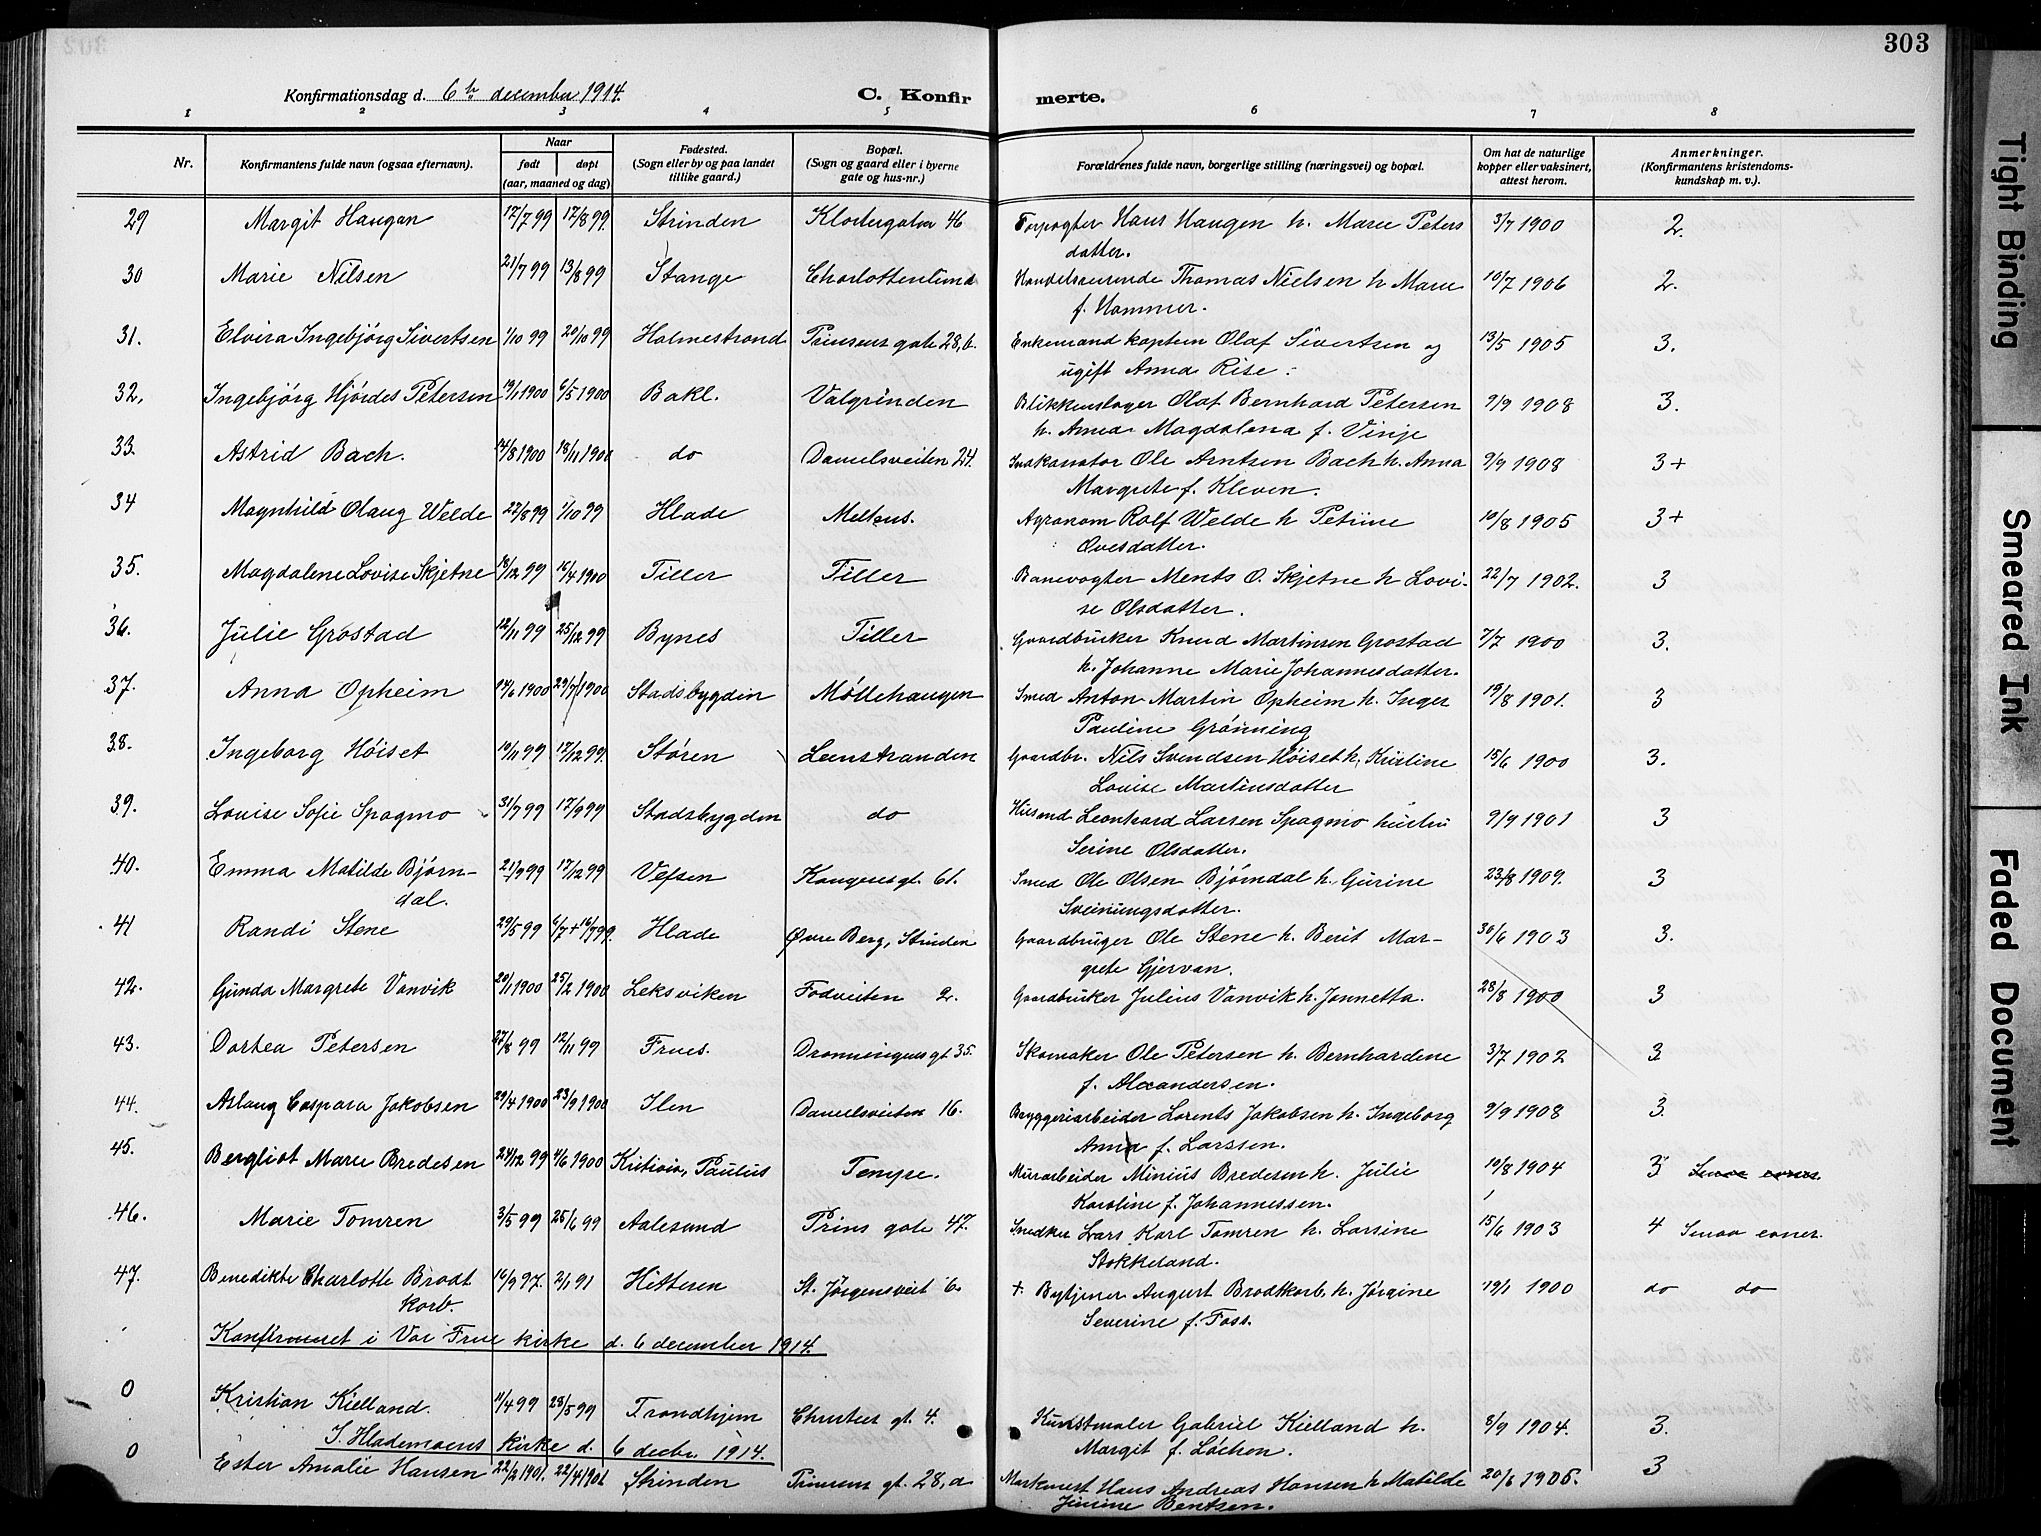 303
Konfirmationsdag d. 6te december 1914.
C. Konfirmerte.
1 2 3 4 5 6 7 8
Nr.
Konfirmantens fulde navn (ogsaa efternavn).
Naar
født
døpt
(aar, maaned og dag)
Fødested.
(Sogn eller by og paa landet
tillike gaard.)
Bopæl.
(Sogn og gaard eller i byerne
gate og hus-nr.)
Forældrenes fulde navn, borgerlige stilling (næringsvei) og bopæl.
Om hat de naturlige
kopper eller vaksinert,
attest herom.
Anmerkninger.
(Konfirmantens kristendoms-
kundskap m. v.).
29 Margit Haugan 17/7 99 17/8 99. Strinden Klostergaten 46 Forpagter Hans Haugen h. Marie Peters 3/7 1900 2.
datter.
30 Marie Nilsen 21/7 99 13/8 99 Stange Charlottenlund Handelsreisende Thomas Nielsen h Marie 10/7 1906 2.
f. Hammer.
31. Elvira Ingebjørg Sivertsen 1/10 99 20/10 99 Holmestrand Prinsens gate 28,b. Enkemand kaptein Olaf Sivertsen og 13/5 1905 3.
ugift Anna Rise.
32. Ingebjørg Hjørdes Petersen 19/1 1900 6/5 1900 Bakl. Valgrinden Blikkenslager Olaf Bernhard Petersen 9/9 1908 3.
h. Anna Magdalena f. Vinje
33. Astrid Bach. 14/8 1900 18/11 1900 do Danielsveiten 24. Inkassator Ole Arntsen Bach h. Anna 9/9 1908 3+
Margrete f. Kleven.
34 Magnhild Olaug Welde 27/8 99 1/10 99 Hlade Meltens. Agronom Rolf Welde h Petrine 10/8 1905 3+
Ovesdatter.
35. Magdalene Lovise Skjetne 18/12 99 16/4 1900 Tiller Tiller Banevogter Ments O. Skjetne h Lovi- 22/7 1902. 3
se Olsdatter.
36. Julie Grostad 12/11 99 25/12 99 Bynes Tiller Gaardbruker Knud Martinsen Grostad 7/7 1900 3.
h. Johanne Marie Johannesdatter.
37. Anna Opheim 14/6 1900 29/7 1900 Stadsbygden Møllehaugen Smed Anton Martin Opheim h. Inger 19/8 1901. 3
Pauline Grønning
38. Ingeborg Høiset 10/11 99 17/12 99. Støren Leenstranden Gaardbr. Nils Svendsen Høiset h. Kristine 15/6 1900 3.
Louise Martinsdatter
39. Louise Sofie Spagmo 31/7 99 17/9 99 Stadsbygden do Husmd Leonhard Larsen Spagmo hustru 9/9 1901 3
Serine Olsdatter.
40. Emma Matilde Bjørn- 21/9 99 17/12 99 Vefsen Kongens gt. 61. Smed Ole Olsen Bjørndal h. Gurine 23/8 1909. 3
dal. Sveinungsdatter.
41 Randi Stene 29/5 99 6/7 + 16/7 99. Hlade Øvre Berg, Strinden Gaardbruger Ole Stene h. Berit Mar- 30/6 1903 3.
grete Gjervan.
42. Gunda Margrete Vanvik 20/1 1900 25/2 1900 Leksviken Fodveiten 2. Gaardbruker Julius Vanvik h. Jannetta. 28/8 1900 3
43. Dortea Petersen 27/8 99 12/11 99 Frues. Dronningens gt 35. Skomaker Ole Petersen h. Bernhardene 3/7 1902 3
f. Alexandersen.
44. Aslaug Caspara Jakobsen 29/4 1900 23/9 1900 Ilen Danielsveiten 16. Bryggeriarbeider Lorents Jakobsen h. Ingeborg 9/9 1908 3.
Anna f. Larssen.
45. Bergliot Marie Bredesen 24/12 99 4/6 1900 Kristiania, Paulus Tempe. Murarbeider Minius Bredesen h. Julie 10/8 1904 3 Smaa evner.
Karoline f. Johannessen.
46. Marie Tomren 3/5 99 25/6 99 Aalesund Prins gate 47. Snedker Lars Karl Tomren h. Larsine 15/6 1903 4 Smaa evner.
Stokkeland.
47. Benedikte Charlotte Brodt 16/9 97. 2/1 91 Hitteren St. Jørgensveit 6. + Bytjener August Brodtkorb h. Jørgine 19/1 1900 do do
korb. Severine f. Foss.
Konfirmeret i Vor Frue kirke d. 6 december 1914.
0 Kristian Kielland. 11/4 99 28/5 99 Trondhjem Christies gt. 4. Kunstmaler Gabriel Kielland h. 8/9 1904. 3.
Margit f. Løchen.
I Hlademoens kirke d. 6 decbr. 1914.
0 Ester Amalie Hansen 22/2 1901. 22/4 1901 Strinden Prinsens gt. 28,a Hans Andreas Hansen h Matilde 20/6 1906. 3
Jinine Bentsen.
Tight Binding
Smeared Ink
Faded Document